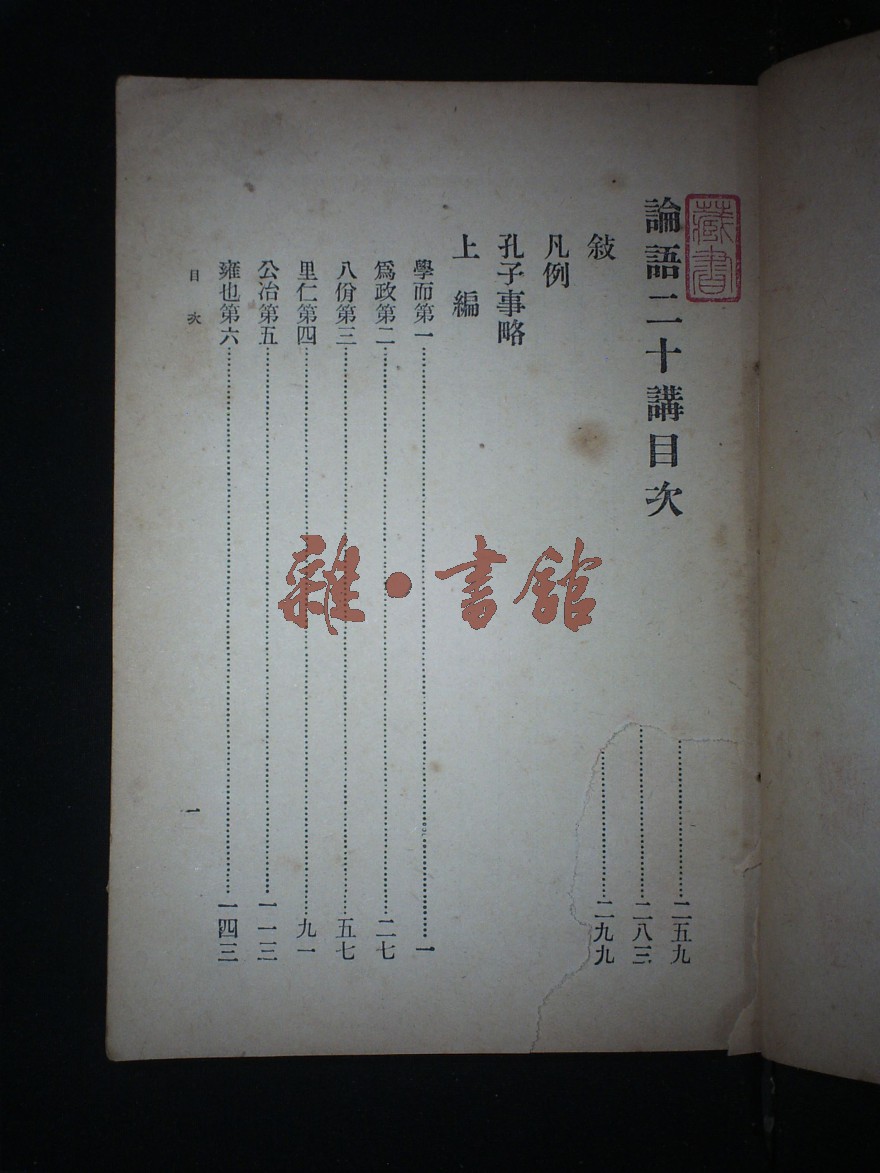 藏書
論語二十講目次
敍
凡例
孔子事略
上編
學而第一………一
爲政第二………二七
八佾第三………五七
里仁第四………九一
公冶第五………一一三
雍也第六………一四三
目次
一
………二五九
………二八三
………二九九
雜·書館